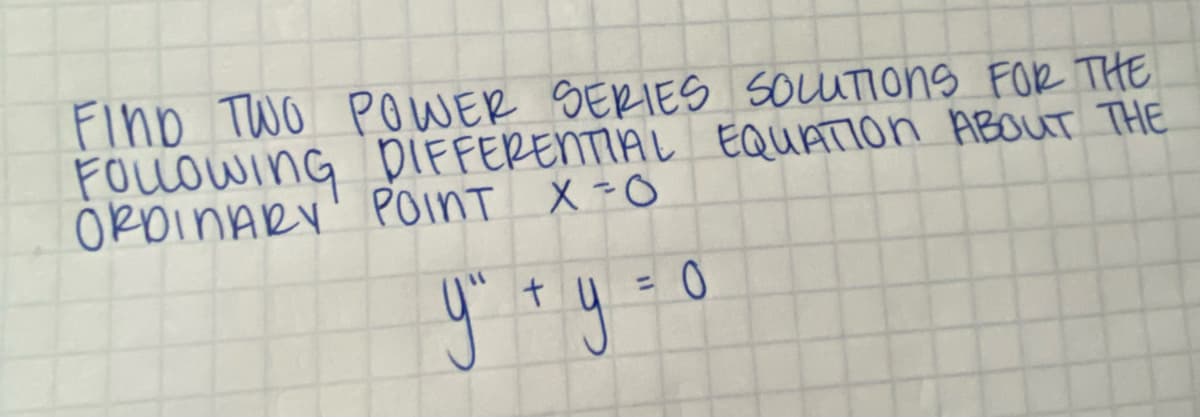 FIND TWO POWER SERIES SOLUTIONS FOR THE
FOLLOWING DIFFERENTIAL EQUATION ABOUT THE
ORDINARY POINT X = 0
y" + y = 0